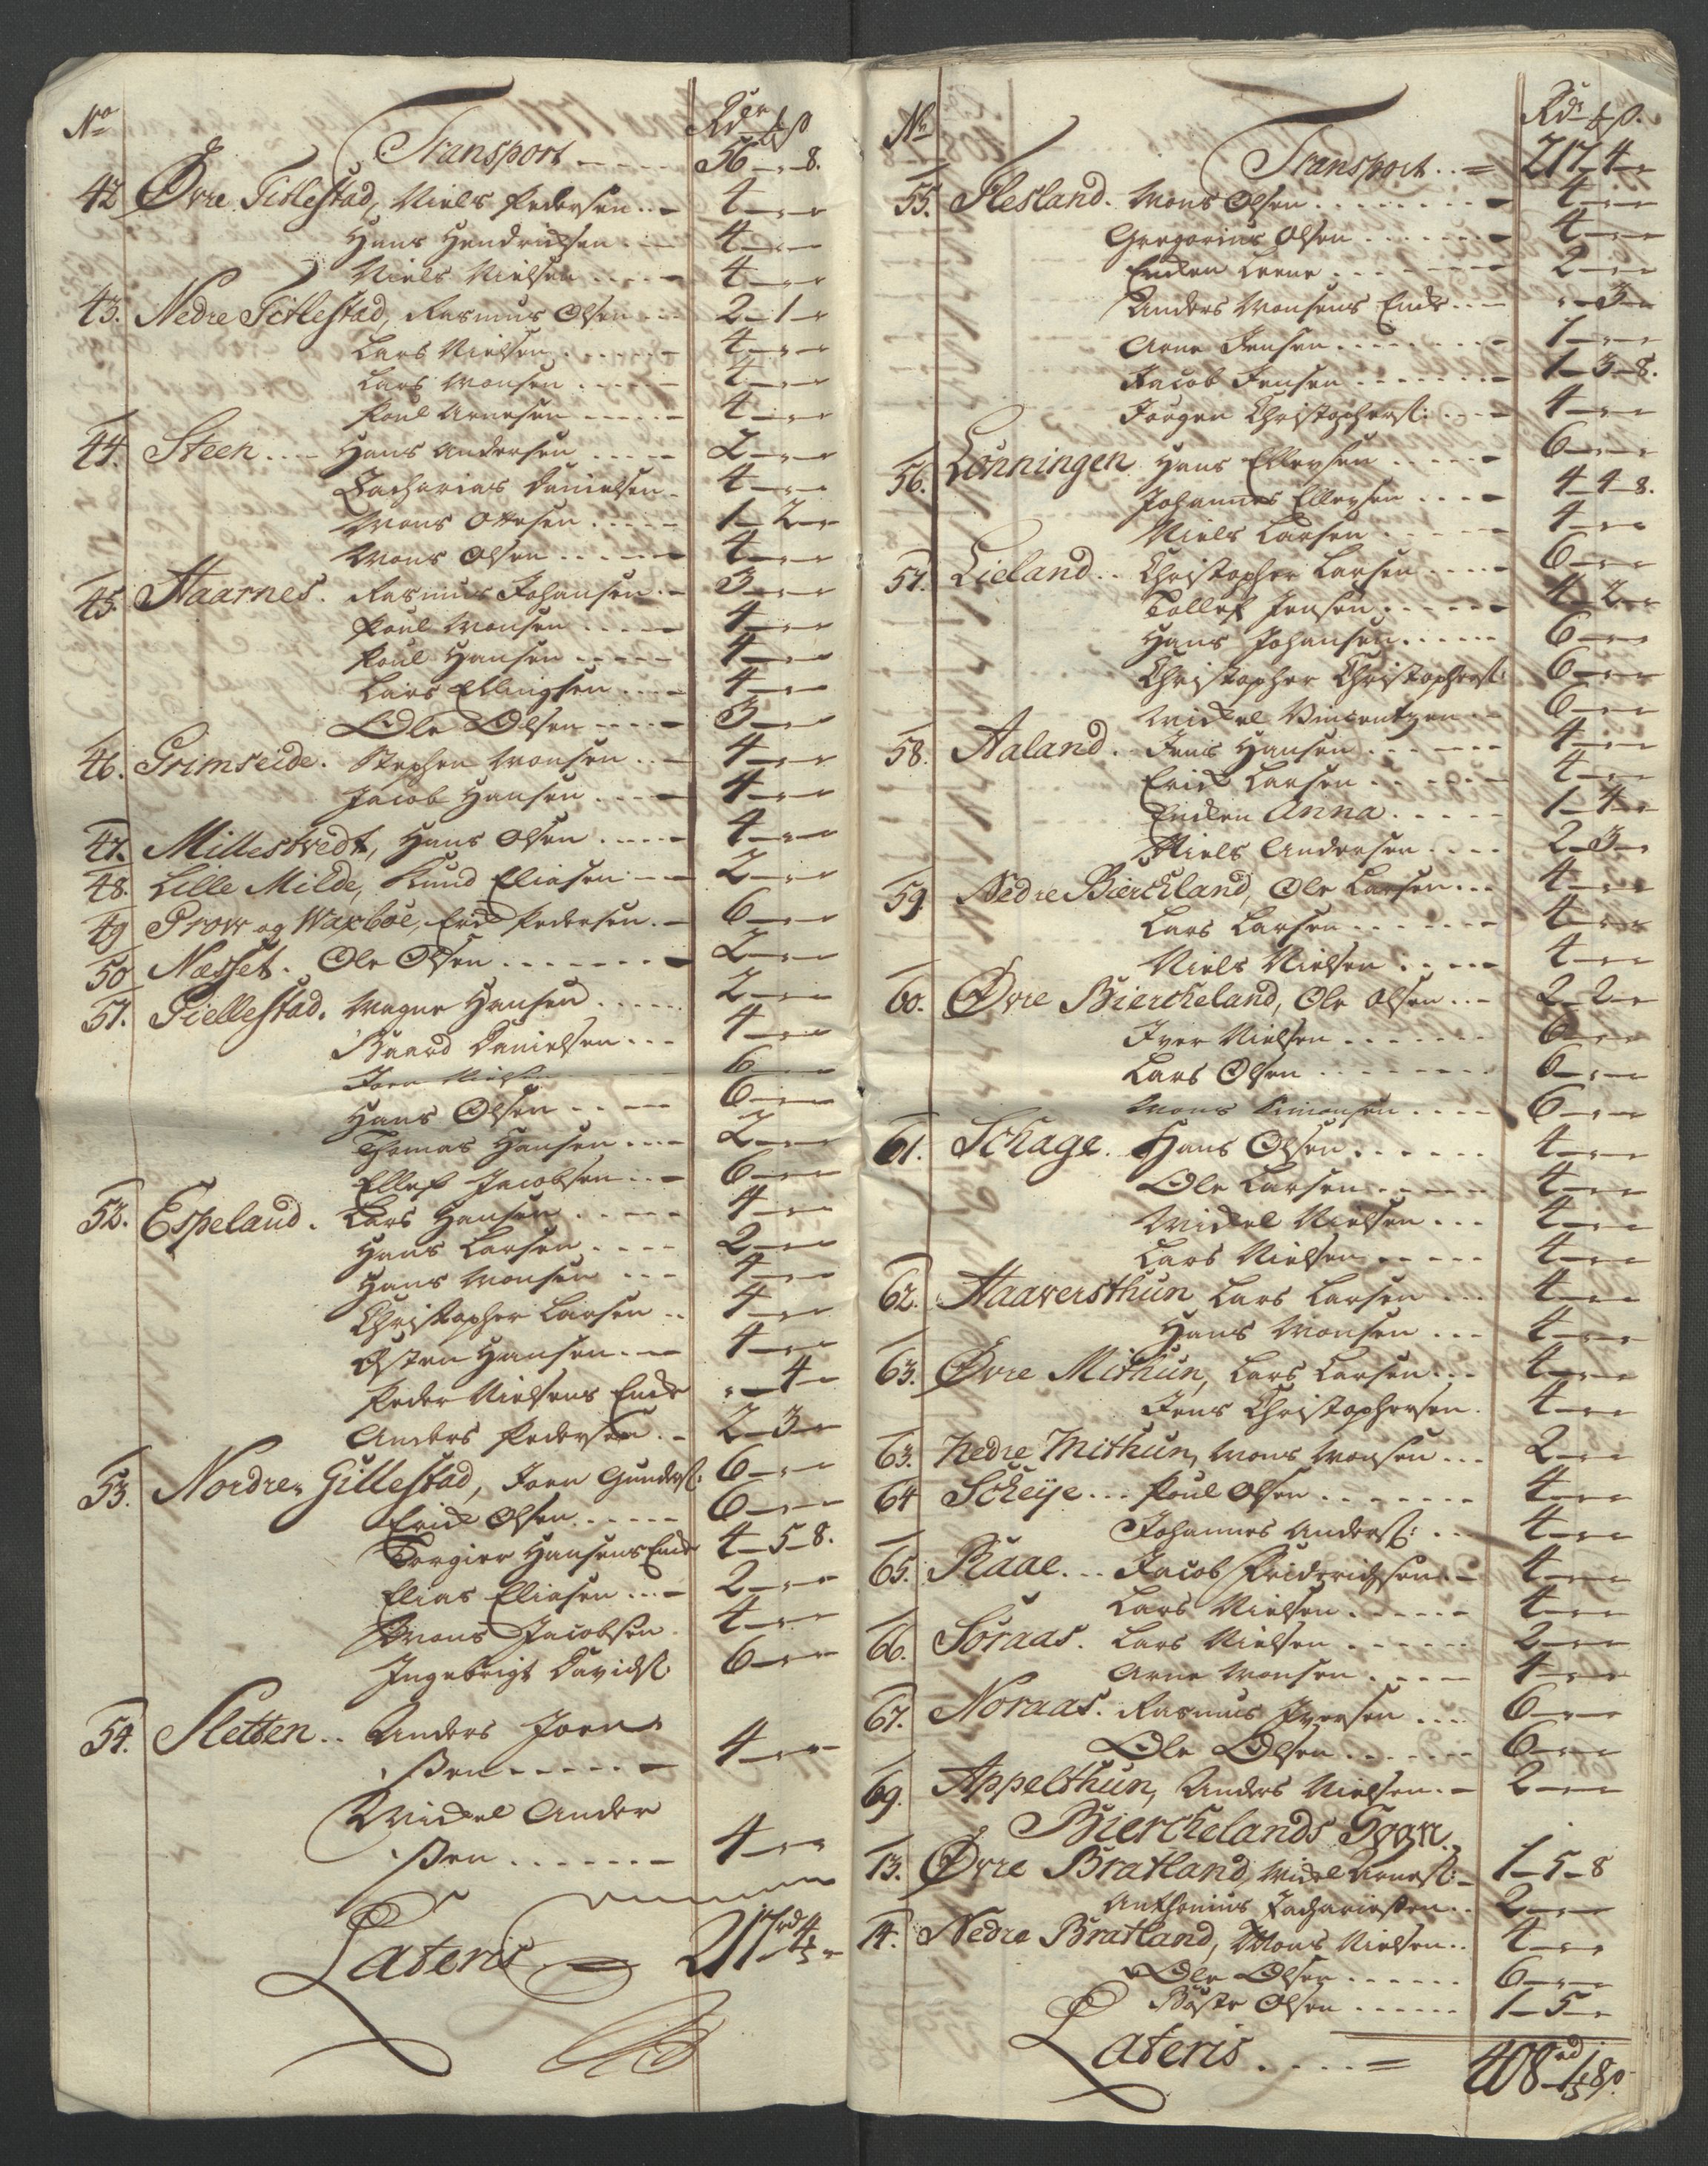 No Rdr ₻ ß
Transport ---- 56 - „ - 8.
42 Øvre Titlestad, Niels Pedersen .. - 4 - „ - „
Hans Hendrichsen . - - 4 - „ - „
Niels Nielsen ..... - 4 - „ - „
43. Nedre Titlestad, Rasmus Olsen - - - 2 - 1 - „
Lars Nielsen ...... - 4 - „ - „
Lars Monsen ..... - 4 - „ - „
Poul Arnesen ..... - 4 - „ - „
44. Steen .... - Hans Andersen ..... - 2 - „ - „
Zacharias Danielsen . 4 - „ - „
Mons Ottesen ..... 1 - 2 - „
Mons Olsen ..... - 4 - „ - „
45. Haarnes. Rasmus Johansen . - 3 - „ - „
Poul Monsen ..... - 4 - „ - „
Poul Hansen ..... - 4 - „ - „
Lars Ellingsen ... - 4 - „ - „
Ole Olsen ..... - 3 - „ - „
46. Grimseide. Stephen Monsen .. - 4 - „ - „
Jacob Hansen .... - 4 - „ - „
47. Mildestvedt, Hans Olsen ..... - 4 - „ - „
48. Lille Milde, Knud Eliasen - - - 2 - „ - „
49 Prow og Waxbøe, Erich Pedersen . - 6 - „ - „
50 Næsset. Ole Olsen ....... - 2 - „ - „
51. Giellestad. Magne Hansen ..... 2 - „ - „
Baard Danielsen ... 4 - „ - „
Joen Nielsen 6 - „ - „
Hans Olsen .. - - 6 - „ - „
Thomas Hansen .... - 2 - „ - „
Ellef Jacobsen .. - 6 - „ - „
52. Espeland. Lars Hansen ..... 4 - „ - „
Hans Larsen .... 2 - „ - „
Hans Monsen ... 4 - „ - „
Christopher Larsen .. 4 - „ - „
Østen Hansen . - - 4 - „ - „
Peder Nielsens Enke „ - 4 -
Anders Pedersen . - 2 - 3 - „
53. Nordre Gillestad, Joen Gunders: 6 - „ - „
Erich Olsen ..... 6 - „ - „
Torgier Hansens Enke 4 - 5 - 8.
Elias Eliasen ... - 2 - „ - „
Mons Jacobsen . 4 - „ - „
Ingebrigt Davids: 6 - „ - „
54. Sletten .. Anders Joen
ßen ..... - 4 - „ - „
Michel Ander
ßen ....... - 4 - „ - „
Lateris - 217 rd 4 ₻ „
No Rdr ₻ ß.
Transport .. = 217 - 4 - „
55. Flesland. Mons Olsen ........ - 4 - „ - „
Gregorius Olsen ....... - 4 - „ - „
Enken Lene ....... - 2 - „ - „
Anders Monsens Enke ... - „ - 3 - „
Arne Jensen ........ - 1 - „ - „
Jacob Jensen ....... - 1 - 3 - 8.
Jørgen Christophers: .... - 4 - „ - „
56. Lønningen Hans Ellefsen ..... - 6 - „ - „
Johannes Ellefsen .... - 4 - 4 - 8.
Niels Larsen ..... - 4 - „ - „
57. Lieland .. Christopher Larsen .... - 6 - „ - „
Tollef Jensen ...... - 4 - 2 - „
Hans Johansen ...... 6 - „ - „
Christopher Christophers: 6 - „ - „
Michel Vincentzen .. 6 - „ - „
58. Aaland. Jens Hansen ....... 4 - „ - „
Erich Larsen ...... - 4 - „ - „
Enken Anna ..... 1 - 4 - „
Niels Andersen .... 2 - 3 - „
59 Nedre Bierckland, Ole Larsen ... 4 - „ - „
Lars Larsen ....... 4 - „ - „
Niels Nielsen ..... 4 - „ - „
60. Øvre Bierckeland, Ole Olsen .. - 2 - 2 - „
Iver Nielsen ....... 6 - „ - „
Lars Olsen ........ 6 - „ - „
Mons Simonsen .... 6 - „ - „
61. Schage. Hans Olsen ...... 4 - „ - „
Ole Larsen ...... 4 - „ - „
Michel Nielsen ... 4 - „ - „
Lars Nielsen ..... 4 - „ - „
62. Haaversthun Lars Larsen ... 4 - „ - „
Hans Monsen ... 4 - „ - „
63. Øvre Mithun, Lars Larsen ... 4 - „ - „
Jens Christophersen . 4 - „ - „
63. Nedre Mithun, Mons Monsen ... 2 - „ - „
64 Scheije ... Poul Olsen ....... 4 - „ - „
Johannes Anders: .. 4 - „ - „
65. Raae ... Jacob Friderichsen . - 4 - „ - „
Lars Nielsen ...... 4 - „ - „
66. Søraas. Lars Nielsen ...... 2 - „ - „
Arne Monsen ..... 4 - „ - „
67. Noraas. Rasmus Iversen ... 6 - „ - „
Ole Olsen ...... 6 - „ - „
69. Appelthun, Anders Nielsen . - 2 - „ - „
Bierckelands Sogn.
13. Øvre Bratland, Michel Arnes: - 1 - 5 - 8
Anthonius Zachariasen .. 2 - „ - „
14. Nedre Bratland, Mons Nielsen .. 4 - „ - „
Ole Olsen ...... 6 - „ - „
Børte Olsen ...... 1 - 5 - „
Lateris .... = 408 rd 1 ₻ 8 ß.